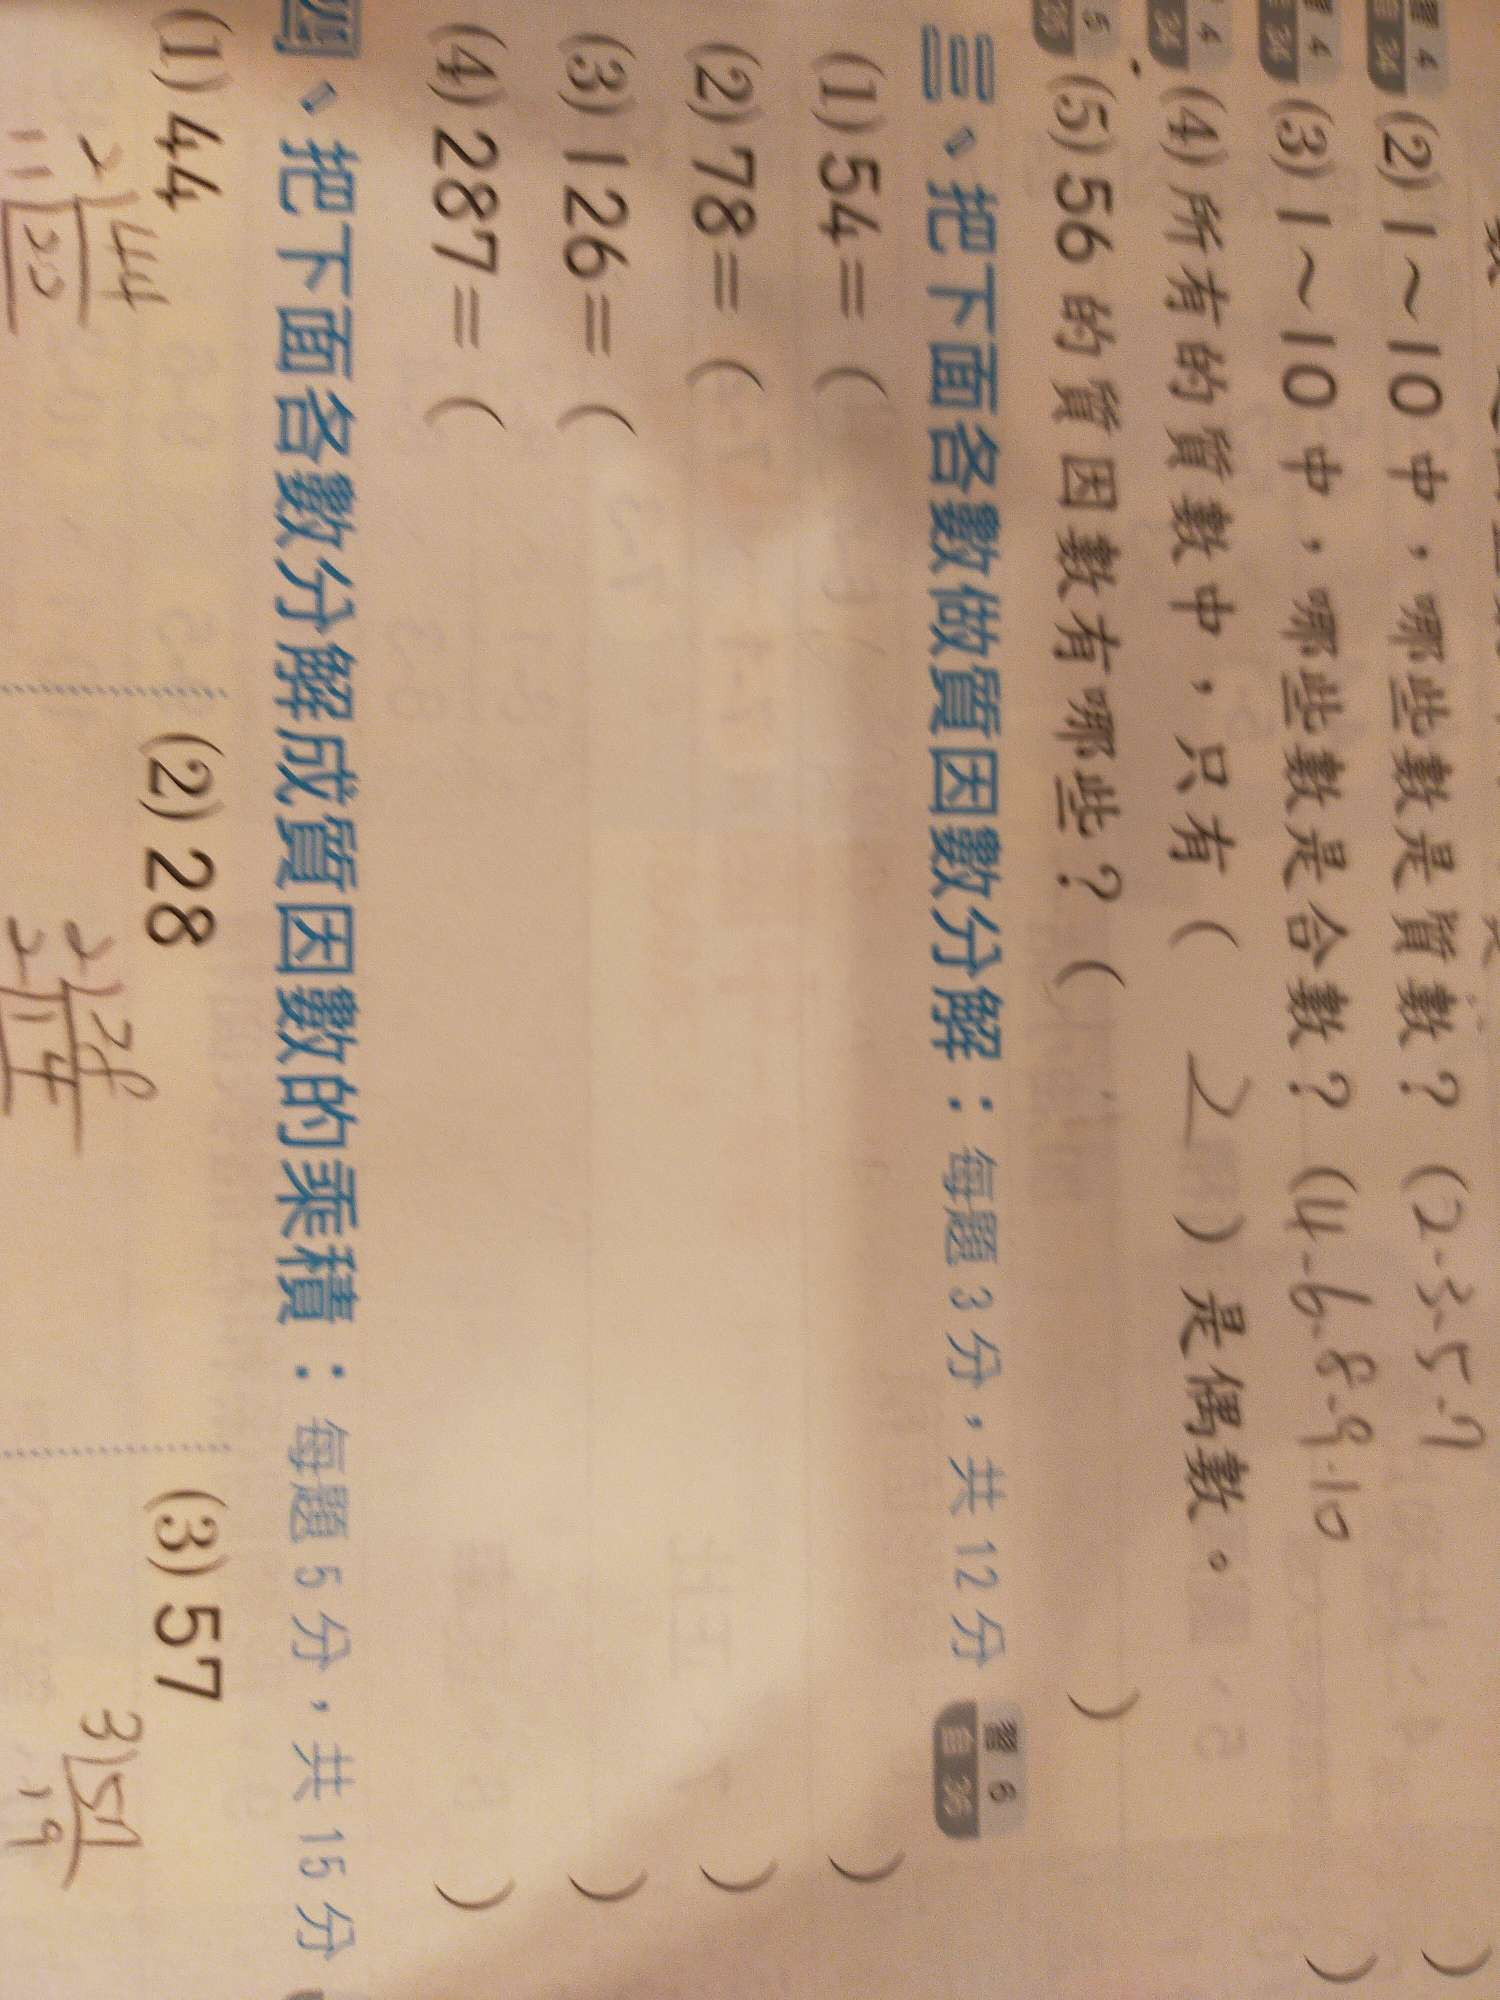 習4 自34 (2) 1～10中，哪些數是質數？(2.3.5.7 )
習4 自34 (3) 1～10中，哪些數是合數？(4.6.8.9.10 )
4 34 (4) 所有的質數中，只有( 2 )是偶數。
5 (5) 56的質因數有哪些？( )
三、把下面各數做質因數分解：每題3分，共12分 習6 自36
(1) 54=( )
(2) 78=( )
(3) 126=( )
(4) 287=( )
四、把下面各數分解成質因數的乘積：每題5分，共15分
(1) 44 (2) 28 (3) 57
2 44 2 28 3 57
11 22 2 14 19